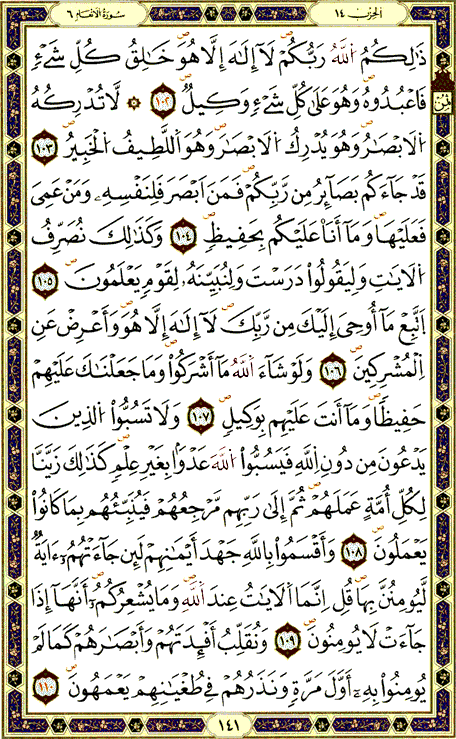 الحزب ١٤
سُورَةُ الأَنْعَام ٦
ذَٰلِكُمُ اللَّهُ رَبُّكُمْ لَآ إِلَٰهَ إِلَّا هُوَ خَٰلِقُ كُلِّ شَےْءٖ
ثمن
فَاعْبُدُوهُ وَهُوَ عَلَىٰ كُلِّ شَےْءٖ وَكِيلٌ ١٠٢ ۞ لَّا تُدْرِكُهُ
اُلَابْصَٰرُ وَهُوَ يُدْرِكُ اُلَابْصَٰرَ وَهُوَ اَللَّطِيفُ اُلْخَبِيرُ ١٠٣
قَدْ جَآءَكُم بَصَآئِرُ مِن رَّبِّكُمْ فَمَنَ اَبْصَرَ فَلِنَفْسِهِۦ وَمَنْ عَمِيَ
فَعَلَيْهَا وَمَآ أَنَا۠ عَلَيْكُم بِحَفِيظٖ ١٠٤ وَكَذَٰلِكَ نُصَرِّفُ
اُلَايَٰتِ وَلِيَقُولُوا۟ دَرَسْتَ وَلِنُبَيِّنَهُۥ لِقَوْمٖ يَعْلَمُونَ ١٠٥
اَتَّبِعْ مَآ أُوحِيَ إِلَيْكَ مِن رَّبِّكَ لَآ إِلَٰهَ إِلَّا هُوَ وَأَعْرِضْ عَنِ
اِلْمُشْرِكِينَ ١٠٦ وَلَوْ شَآءَ اَللَّهُ مَآ أَشْرَكُوا۟ وَمَا جَعَلْنَٰكَ عَلَيْهِمْ
حَفِيظٗا وَمَآ أَنتَ عَلَيْهِم بِوَكِيلٖ ١٠٧ وَلَا تَسُبُّوا۟ اُلذِينَ
يَدْعُونَ مِن دُونِ اِللَّهِ فَيَسُبُّوا۟ اُللَّهَ عَدْوَۢا بِغَيْرِ عِلْمٖ كَذَٰلِكَ زَيَّنَّا
لِكُلِّ أُمَّةٍ عَمَلَهُمْ ثُمَّ إِلَىٰ رَبِّهِم مَّرْجِعُهُمْ فَيُنَبِّئُهُم بِمَا كَانُوا۟
يَعْمَلُونَ ١٠٨ وَأَقْسَمُوا۟ بِاللَّهِ جَهْدَ أَيْمَٰنِهِمْ لَئِن جَآءَتْهُمُۥٓ ءَايَةٞ
لَّيُومِنُنَّ بِهَا قُلِ اِنَّمَا اَلَايَٰتُ عِندَ اَللَّهِ وَمَا يُشْعِرُكُمُۥٓ أَنَّهَآ إِذَا
جَآءَتْ لَا يُومِنُونَ ١٠٩ وَنُقَلِّبُ أَفْـِٕدَتَهُمْ وَأَبْصَٰرَهُمْ كَمَا لَمْ
يُومِنُوا۟ بِهِۦٓ أَوَّلَ مَرَّةٖ وَنَذَرُهُمْ فِے طُغْيَٰنِهِمْ يَعْمَهُونَ ١١٠
١٤١